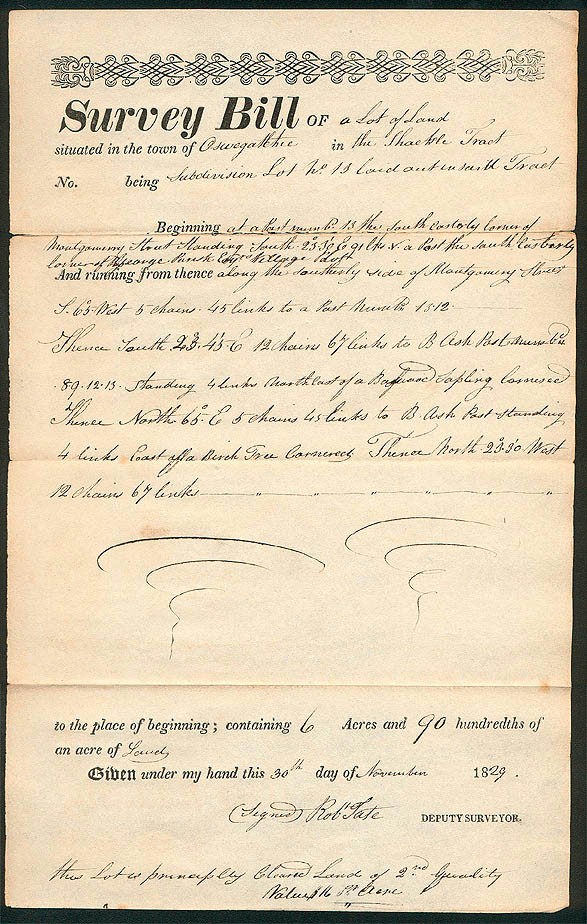 Survey Bill OF a Lot of Land
situated in the town of Oswegatchie in the Shackle Tract
No. being Subdivision Lot No 13 laid out in said Tract
Beginning at a Post numbr. 13 the South Easterly corner of
Montgomery Street Standing South 23.30 E 91 lks & a Post the South Easterly
corner of George Village
And running from thence along the Southerly side of Montgomery Street
S. 65 West 5 chains 45 links to a Post Numbr. 1312
Thence South 23.45 E 12 chains 67 links to B Ash Post numbrd
89.12.13. Standing 4 links North East of a Basswood Sapling Cornered
Thence North 65° E 5 chains 45 links to B. Ash Post Standing
4 links East of a Birch Tree Cornered Thence North 23.30 West
12 chains 67 links " " " " " "
to the place of beginning; containing 6 Acres and 90 hundredths of
an acre of Land
Given under my hand this 30th day of November 1829.
(Signed) Robt Tate DEPUTY SURVEYOR.
this Lot is principly Cleared Land of 2nd Quality
Value Pr Acre